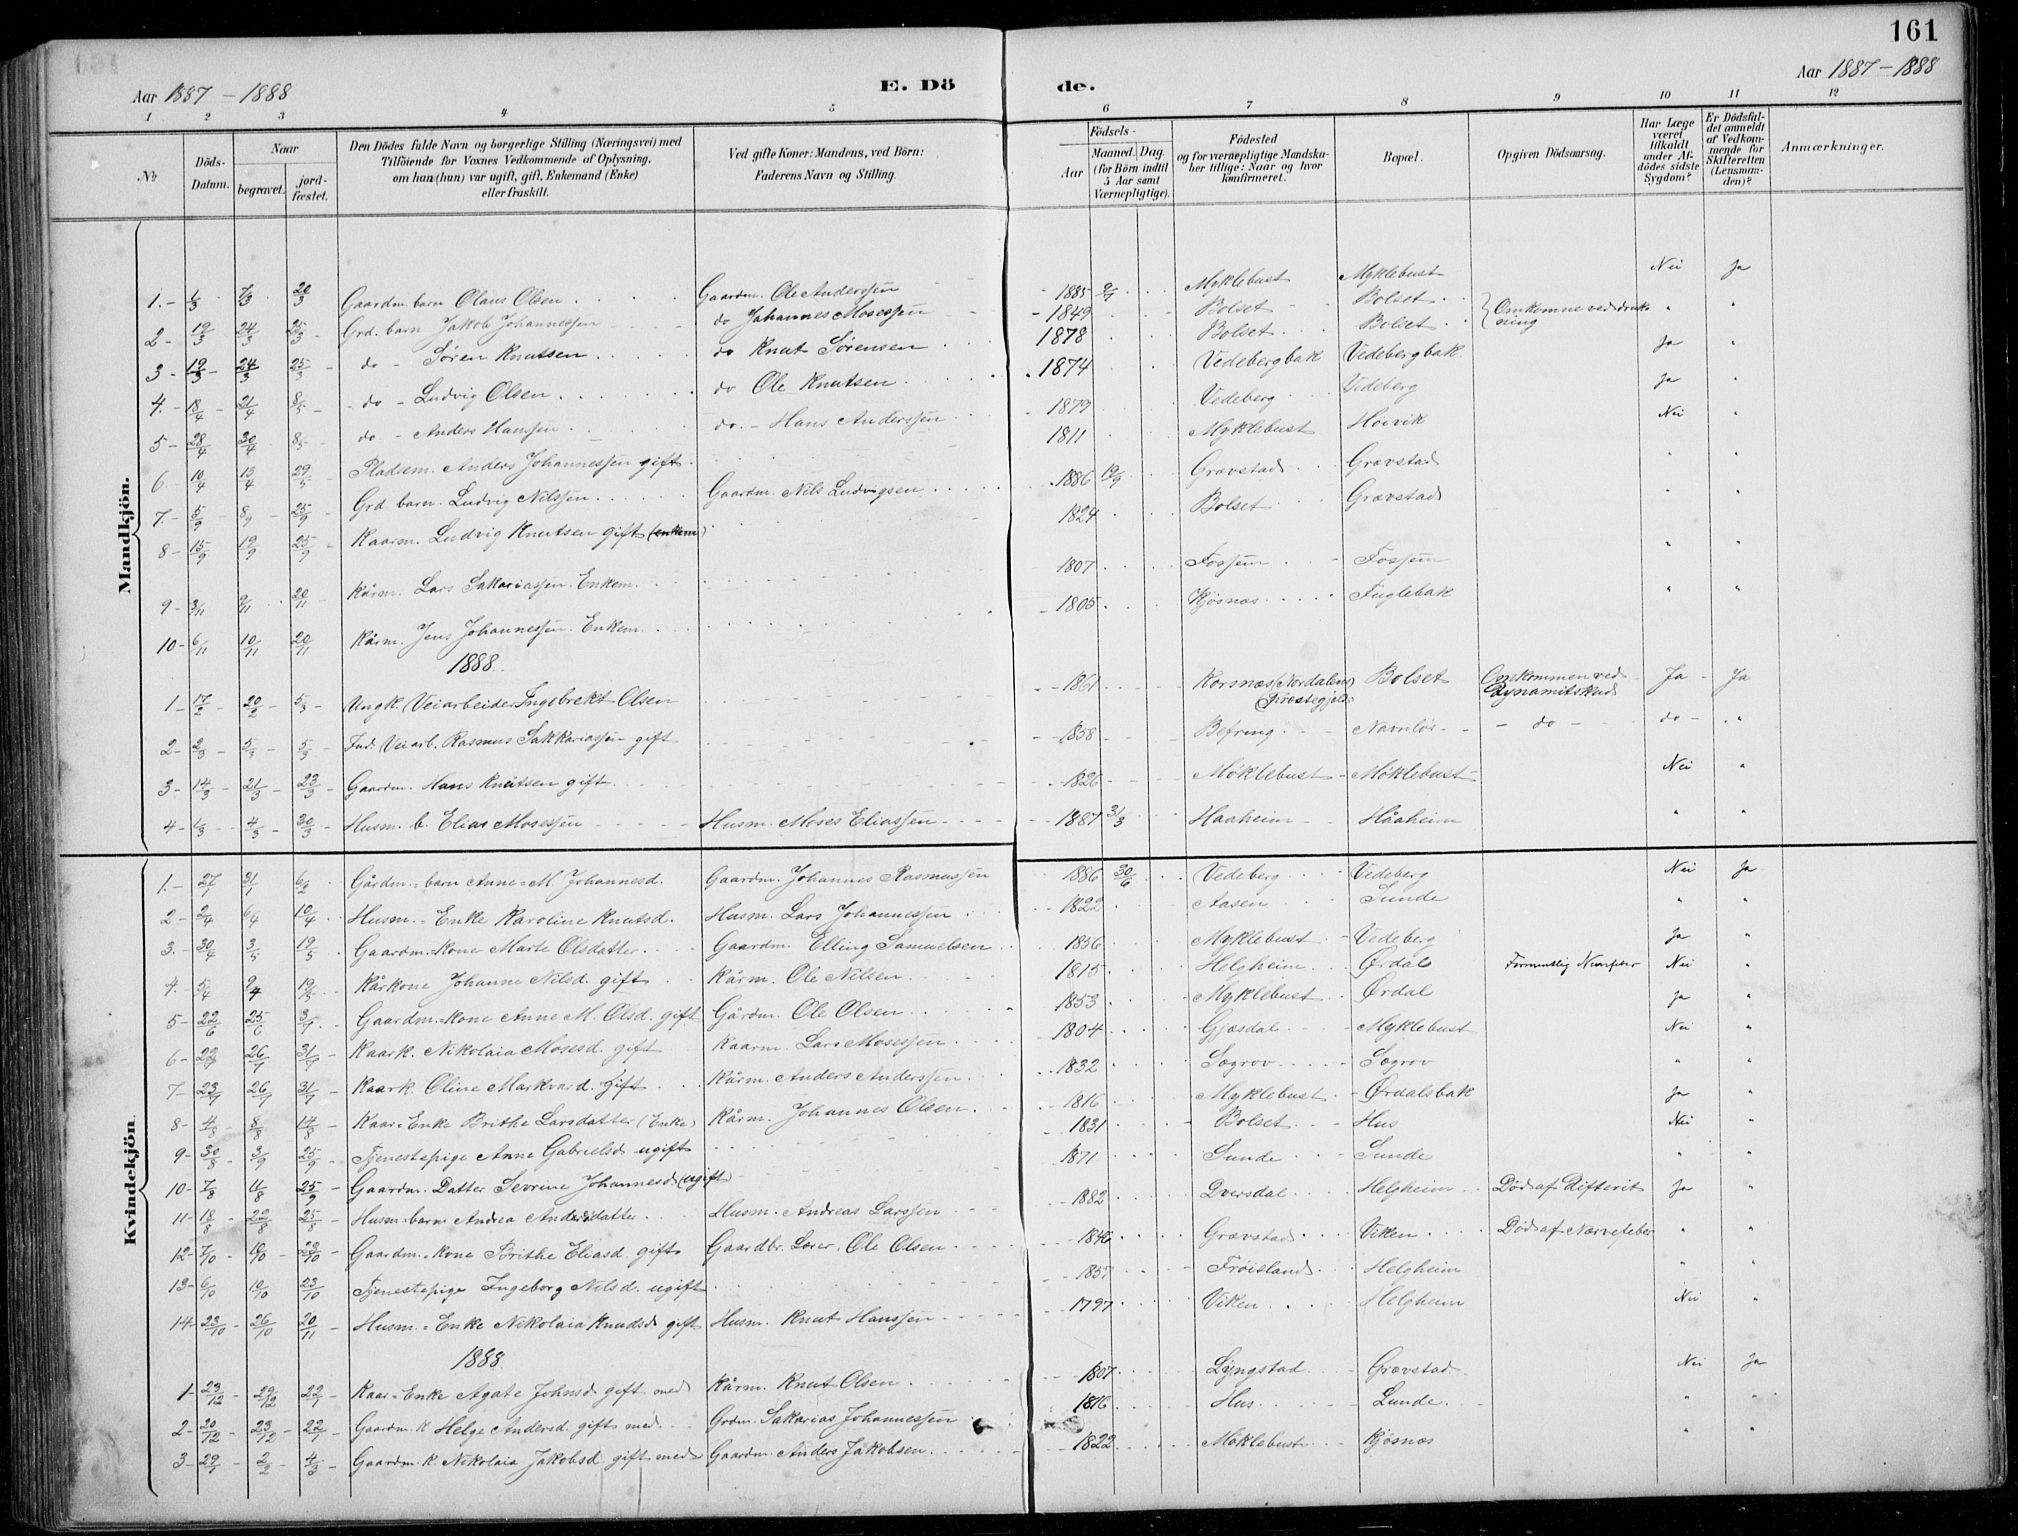 161
Aar 1887 - 1888
E. Döde.
Aar 1887 - 1888
1 2 3 4 5 6 7 8 9 10 11 12
№
Döds-Datum.
Naar
begravet.
jord-fæstet.
Den Dödes fulde Navn og borgerlige Stilling (Næringsvei) med
Tilföiende for Voxnes Vedkommende af Oplysning,
om han (hun) var ugift, gift, Enkemand (Enke)
eller fraskilt.
Ved gifte Koner: Mandens, ved Börn:
Faderens Navn og Stilling.
Födsels-
Aar
Maaned. Dag.
(for Börn indtil 5 Aar samt Værnepligtige).
Födested
og for værnepligtige Mandskaber tillige: Naar og hvor konfirmeret.
Bopæl.
Opgiven Dödsaarsag.
Har Læge været tilkaldt under Afdödes sidste Sygdom?
Er Dödsfaldet anmeldt af Vedkommende for Skifteretten (Lensmanden)?
Anmærkninger.
Mandkjön.
1. - 1/3 7/3 20/3 Gaardm. barn Olaus Olsen Gaardm. Ole Anderssen 1885 Myklebust Myklebust Nei Ja
2 - 19/3 24/3 25/3 Grd. barn Jakob Johannessen do Johannes Mosessen 1849 Bolset Bolset Omkomne ved drukning " "
3 - 19/3 24/3 25/3 do - Søren Knutsen do Knut Sørensen 1878 Bolset Bolset
4. - 18/4 21/4 8/5 do - Ludvig Olsen do Ole Knutsen 1874 Vedebergbak Vedebergbak Ja "
5 - 28/4 30/4 8/5 do - Anders Hanssen do - Hans Anderssen 1879 Vedeberg Vedeberg Ja "
6 - 10/4 13/4 29/5 Pladsm. Anders Johannessen gift 1811 Myklebust Høivik Nei "
7. - 5/9 8/9 25/9 Grd barn. Ludvig Nilssen Gaardm. Nils Ludvigsen 1886 19/9 Grøvstad Grøvstad " "
8 - 15/9 19/9 25/9 Kaarm. Ludvig Knutsen gift (enkem) 1824 Bolset Grøvstad "
9 - 3/11 9/11 20/11 Kårm. Lars Sakariassen. Enkem. 1807 Fossen Fossen " "
10 - 6/11 10/11 20/11 Kårm. Jens Johannessen. Enkem. 1805 Kjøsnæs Fuglebak " "
1888.
1 - 17/2 20/2 5/3 Ungk. Veiarbeider Ingebrekt Olsen 1861 Korsnæs (Nordalens Præstegjeld) Bolset Omkommen ved Dynamitskud Ja Ja
2 - 2/3 5/3 5/3 Ind. Veiarb. Rasmus Sakkariassen gift 1858 Befring Navnløs - do - do - "
3 - 14/3 21/3 23/3 Gaardm. Hans Knutsen gift 1826 Møklebust Møklebust Nei "
4 - 1/3 4/3 30/3 Husm. b. Elias Mosessen Husm. Moses Eliassen 1887 31/3 Haaheim Håaheim " "
Kvindekjön.
1. - 27 31/1 6/2 Gårdm. = barn Anne = M. Johannesd. Gaardm. Johannes Rasmussen 1886 30/6 Vedeberg Vedeberg Nei Ja
2 - 2/4 6/4 10/4 Husm. = Enke Karoline Knutsd. Husm. Lars Johannessen 1822 Aasen Sunde " "
3. - 30/4 3/5 19/5 Gaardm. = Kone Marte Olsdatter Gaardm. Elling Samuelsen 1856 Myklebust Vedeberg Ja "
4. - 5/4 9/4 19/5 Kårkone Johanne Nilsd. gift Kårm. Ole Nilsen 1815 Helgheim Ørdal Nei "
5 - 22/6 25/6 3/7 Gaardm. = Kone Anne M. Olsd. gift Gårdm. Ole Olsen 1853 Myklebust Ørdal Ja "
6 - 26/7 31/7 Kaark. Nikolaia Mosesd. gift Kaarm. Lars Mosessen 1804 Gjøsdal Myklebust Nei "
7 - 23/7 26/7 31/7 Kaark. Oline Markvard. gift Kårm. Anders Anderssen 1832 Søgrov Søgrov " "
8 - 4/8 8/8 14/8 Kaar = Enke Brithe Larsdatter (Enke) Kårm. Johannes Olsen 1816 Myklebust Ørdalsbak Ja "
9 - 30/8 3/9 25/9 Tjenestepige Anne Gabrielsd ugift 1831 Bolset Hus Nei "
10 - 7/8 11/8 25/9 Gaardm. Datter Sevrine Johannesd (ugift 1871 Sunde Sunde " "
11 - 18/8 22/8 25/8 Husm. barn Andrea Andersdatter Husm. Andreas Larssen 1882 Dversdal Helgheim Død af Difterit Ja "
12 - 7/10 10/10 23/10 Gaardm. = Kone Brithe Eliasd. gift Gaardbr. Lærer. Ole Olsen 1846 Grøvstad Viken Død af Nærvefeber " "
13 - 6/10 10/10 23/10 Tjenestepige Ingeborg Nilsd. ugift 1857 Frøisland Helgheim " "
14 - 23/10 26/10 20/11 Husm. = Enke Nikolaia Knudsd. gift Husm. Knut Hanssen 1797 Viken Helgheim Nei "
1888.
1 - 23/12 29/12 22/1 Kaar = Enke Agate Johnsd gift med Kårm. Knut Olsen 1807 Lyngstad Grøvstad Nei Ja
2 - 20/12 23/12 22/1 Gaardm. K Helge Andersd. gift med Grdm. Sakarias Johannessen 1816 Hus Lunde " "
3 - 29/1 2/2 4/3 Gaardm. K. Nikolaia Jakobsd. gift med Gaardm. Anders Jakobsen 1822 Møklebust Kjøsnæs " "